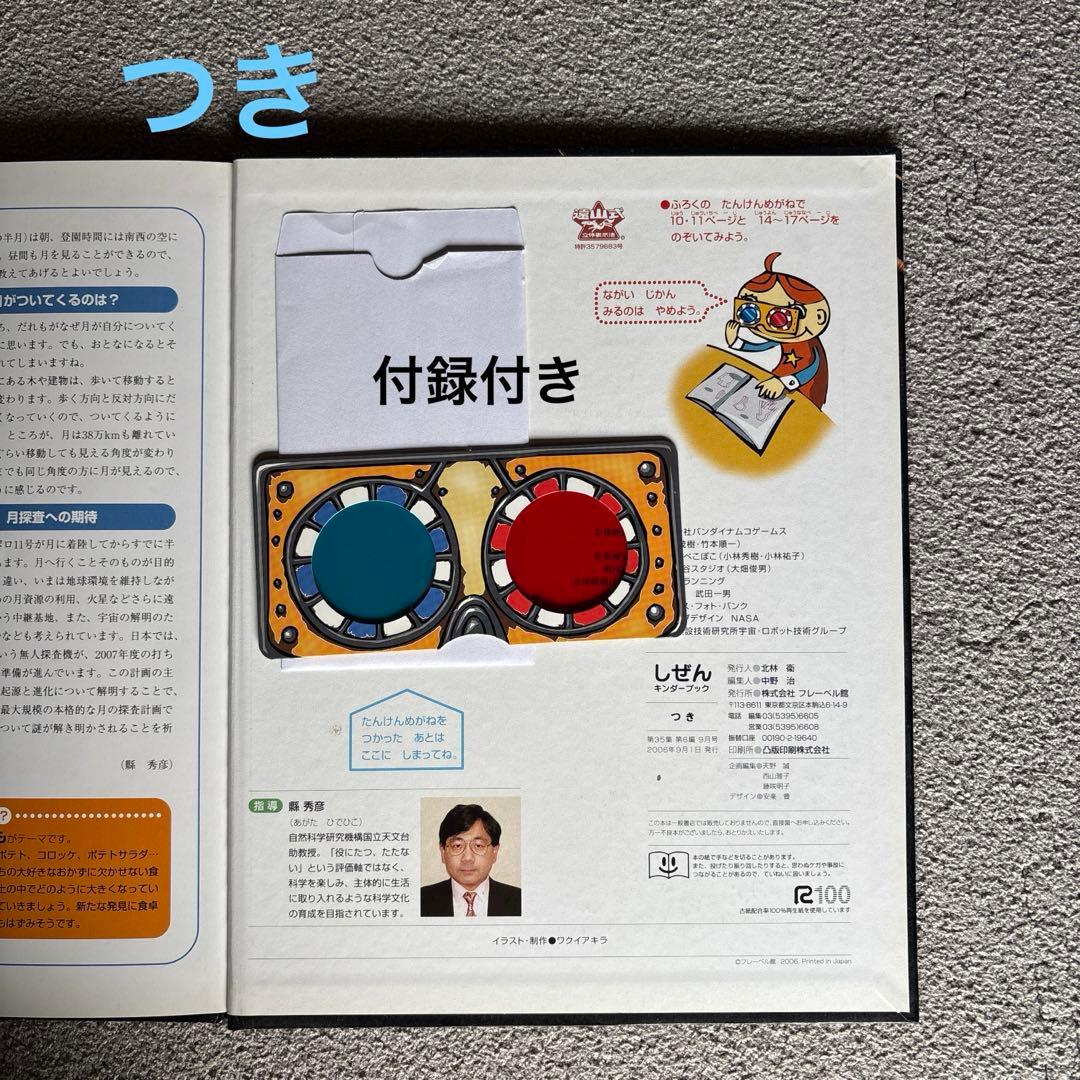 つき
付録付き
の半月)は朝、登園時間には南西の空に
昼間も月を見ることができるので、
教えてあげるとよいでしょう。
がついてくるのは？
ろ、だれもがなぜ月が自分についてく
に思います。でも、おとなになるとそ
れてしまいますね。
にある木や建物は、歩いて移動すると
変わります。歩く方向と反対方向にだ
くなっていくので、ついてくるように
ところが、月は38万kmも離れてい
ぐらい移動しても見える角度が変わり
までも同じ角度の方に月が見えるので、
うに感じるのです。
月探査への期待
ポロ11号が月に着陸してからすでに半
ます。月へ行くことそのものが目的
違い、いまは地球環境を維持しなが
の月資源の利用、火星などさらに遠
う中継基地、また、宇宙の解明のた
なども考えられています。日本では、
いう無人探査機が、2007年度の打ち
準備が進んでいます。この計画の主
起源と進化について解明することで、
最大規模の本格的な月の探査計画で
ついて謎が解き明かされることを祈
(縣 秀彦)
?
がテーマです。
ポテト、コロッケ、ポテトサラダ…
ちの大好きなおかずに欠かせない食
土の中でどのように大きくなってい
ていきましょう。新たな発見に食卓
もはずみそうです。
遠山式
立体表示法
特許3579683号
●ふろくの たんけんめがねで
10・11ページと 14〜17ページを
のぞいてみよう。
ながい じかん
みるのは やめよう。
社バンダイナムコゲームス
茂樹・竹本順一)
ぺこぽこ(小林秀樹・小林祐子)
谷スタジオ(大畑俊男)
ランニング
武田一男
ス・フォト・バンク
デザイン NASA
設技術研究所宇宙・ロボット技術グループ
しぜん
キンダーブック
つき
第35集 第6編 9月号
2006年9月1日 発行
発行人●北林 衛
編集人●中野 治
発行所●株式会社 フレーベル館
〒113-8611 東京都文京区本駒込6-14-9
電話 編集03(5395)6605
営業03(5395)6608
振替口座 00190-2-19640
印刷所●凸版印刷株式会社
企画編集●天野 誠
西山雅子
藤咲明子
デザイン●安楽 豊
この本は一般書店では販売しておりませんので、直接園へお申し込みください。
万一不良本がございましたら、おとりかえいたします。
本の紙で手などを切ることがあります。
また、投げたり振り回したりすると、思わぬケガや事故に
つながることがあるので、ていねいに扱いましょう。
R100
古紙配合率100%再生紙を使用しています
たんけんめがねを
つかった あとは
ここに しまってね。
指導 縣 秀彦
(あがた ひでひこ)
自然科学研究機構国立天文台
助教授。「役にたつ、たたな
い」という評価軸ではなく、
科学を楽しみ、主体的に生活
に取り入れるような科学文化
の育成を目指されています。
イラスト・制作●ワクイアキラ
©フレーベル館 2006, Printed in Japan